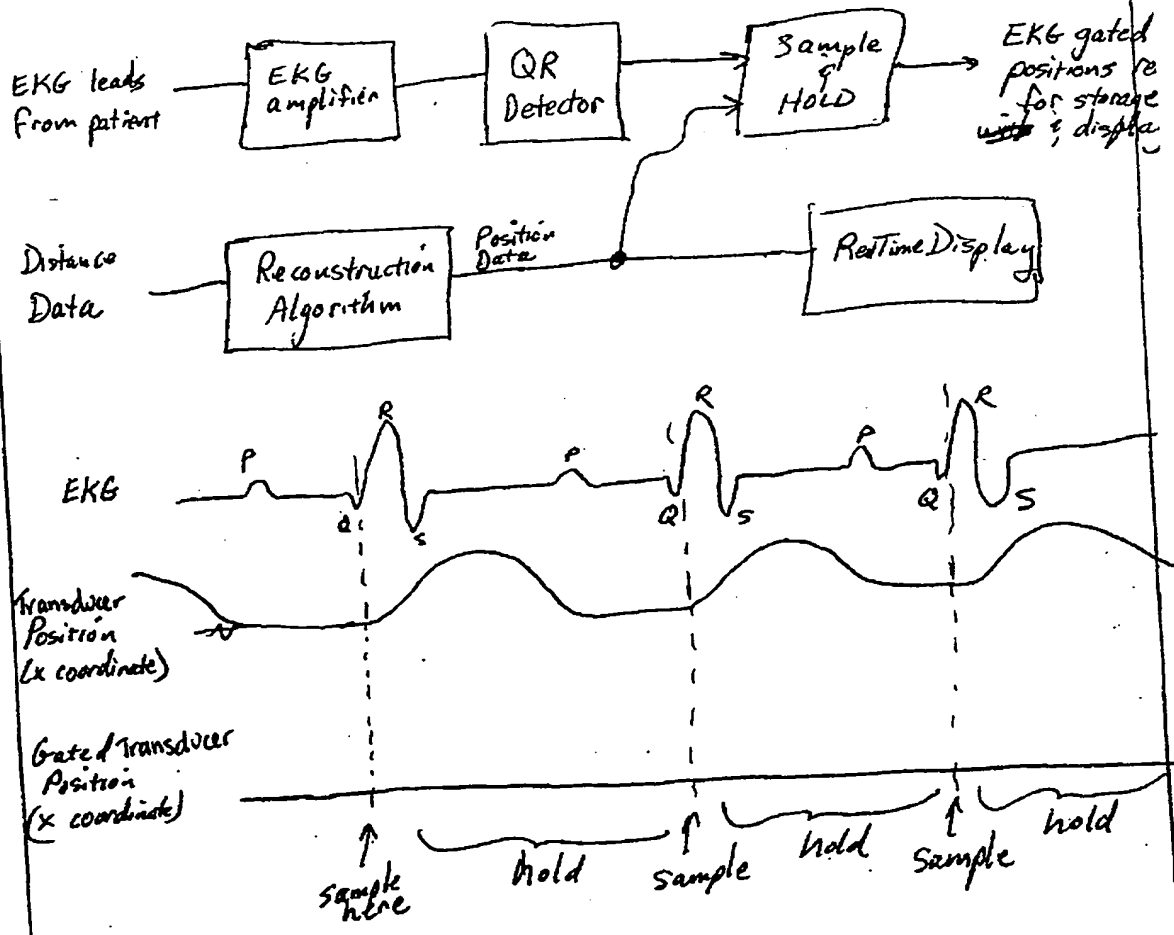 EKG leads
from patient
EKG
amplifier
QR
Detector
Sample
&
HOLD
EKG gated
positions re
for storage
& displa
Distance
Data
Reconstruction
Algorithm
Position
Data
RealTime Display
EKG
P
Q
R
S
P
Q
R
S
P
Q
R
S
Transducer
Position
(x coordinate)
Gated Transducer
Position
(x coordinate)
sample
here
hold
sample
hold
sample
hold